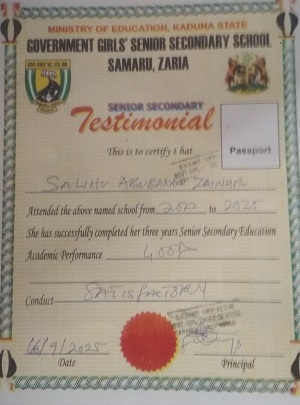 MINISTRY OF EDUCATION, KADUNA STATE
GOVERNMENT GIRLS' SENIOR SECONDARY SCHOOL
SAMARU, ZARIA
SENIOR SECONDARY
Testimonial
This is to certify that
Passport
SALIHU ABUBAKAR ZAINAB
Attended the above named school from 2022 to 2025
She has successfully completed her three years Senior Secondary Education
Academic Performance GOOD
Conduct SATISFACTORY
16/9/2025
Date
Principal